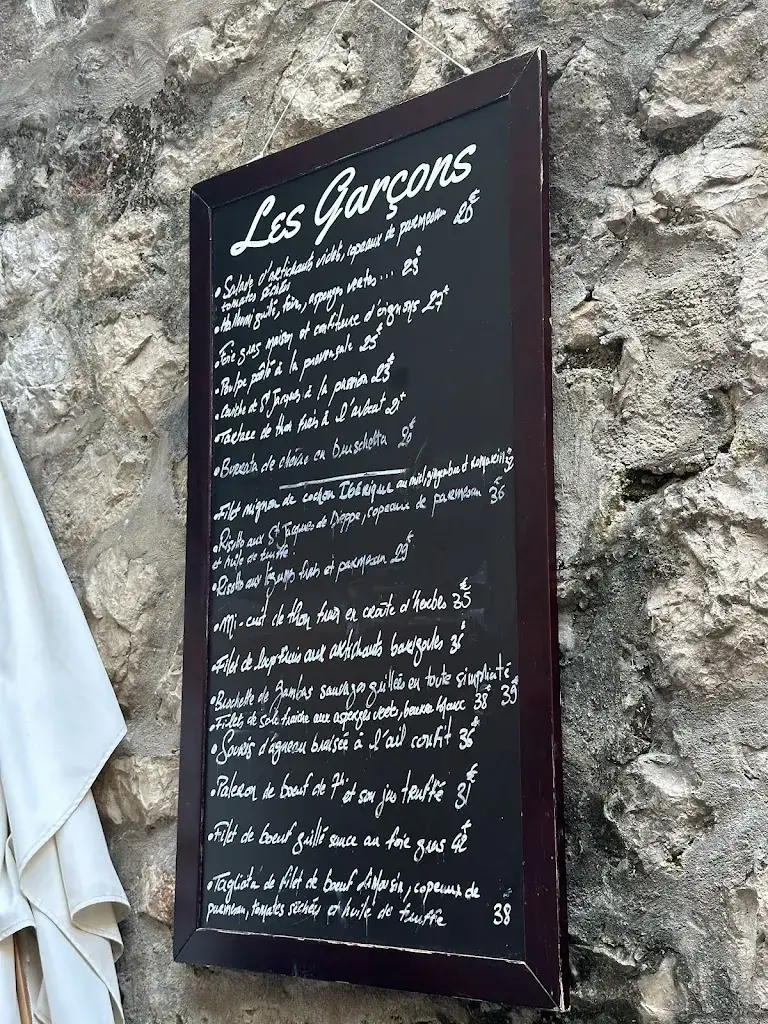 Les Garçons
• Salade d'artichauts violet, copeaux de parmesan 26€
tomates séchées
• Halloumi grillé, fèves, asperges vertes... 23€
• Foie gras maison et confiture d'oignons 27€
• Poulpe poêlé à la provençale 25€
• Ceviche de St Jacques à la passion 23€
• Tartare de thon frais à l'avocat 21€
• Burrata de chèvre en bruschetta 20€
• Filet mignon de cochon Ibérique au miel, gingembre et romarin 32
• Risotto aux St Jacques de Dieppe, copeaux de parmesan 36
et huile de truffe
• Risotto aux légumes frais et parmesan 29€
• Mi-cuit de thon frais en croûte d'herbes 35€
• Filet de aux artichauts barigoules
• Brochette de Gambas sauvages grillées en toute simplicité 39€
• Filets de sole fraîche aux asperges vertes, beurre 38€
• Souris d'agneau braisée à l'ail confit 36€
• Paleron de boeuf de 7h et son jus truffé 31€
• Filet de boeuf grillé sauce au foie gras 42€
• Tagliata de filet de boeuf Limousin, copeaux de
parmesan, tomates séchées et huile de truffe 38